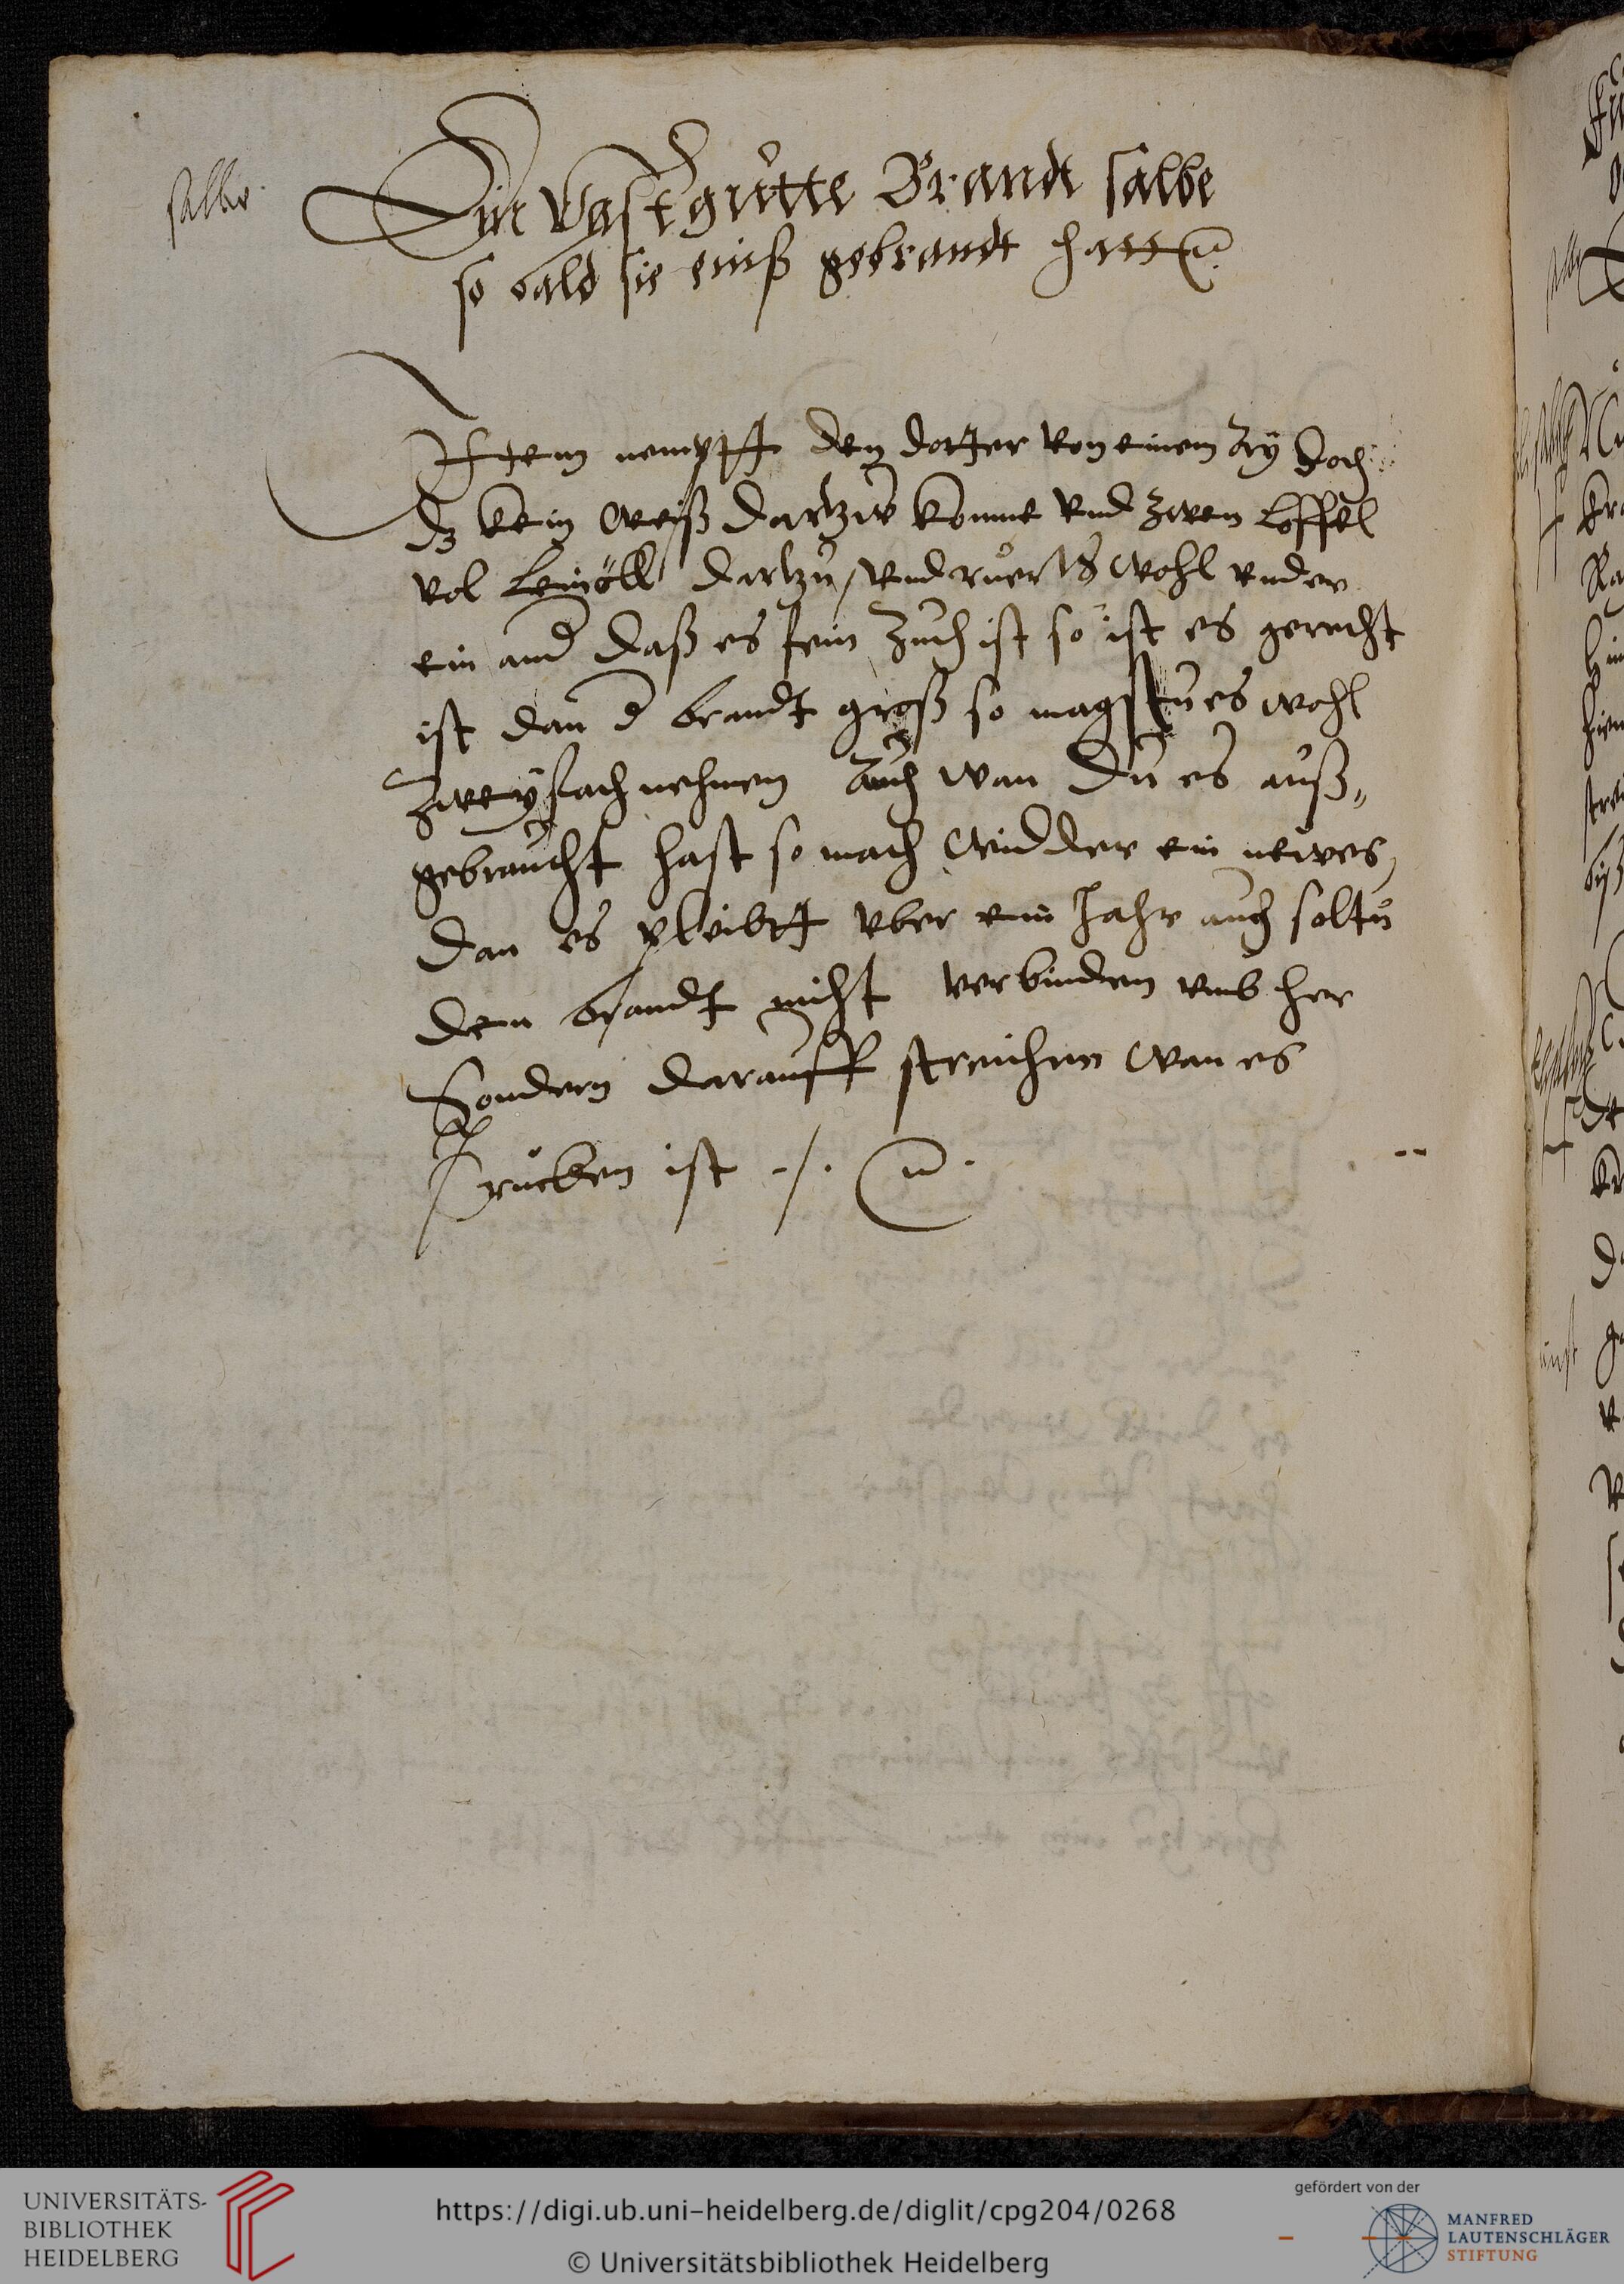 salbe.
Ein Vast gutte Brandt salbe
so bald sie einß gebrandt hatt
Ittem nempft den dotter von einem Ay doch
dz kein weiß dartzu komme vnd zwen löffel
vol Leinöll dartzu / vnd ruer es wohl vnder
ein and daß es fein Zech ist so ist es gerecht
ist dan d brandt groß so magstu es wohl
zweyfach nehmen Auch wan du es auß„
gebraucht hast so mach widder ein newes,
dan es pleibtt vber ein Jahr auch soltu
den brandt nicht verbinden vmb her
Sondern darauff streichen wan es
Trucken ist ./.
UNIVERSITÄTS-
BIBLIOTHEK
HEIDELBERG
https://digi.ub.uni-heidelberg.de/diglit/cpg204/0268
© Universitätsbibliothek Heidelberg
gefördert von der
MANFRED
LAUTENSCHLÄGER
STIFTUNG